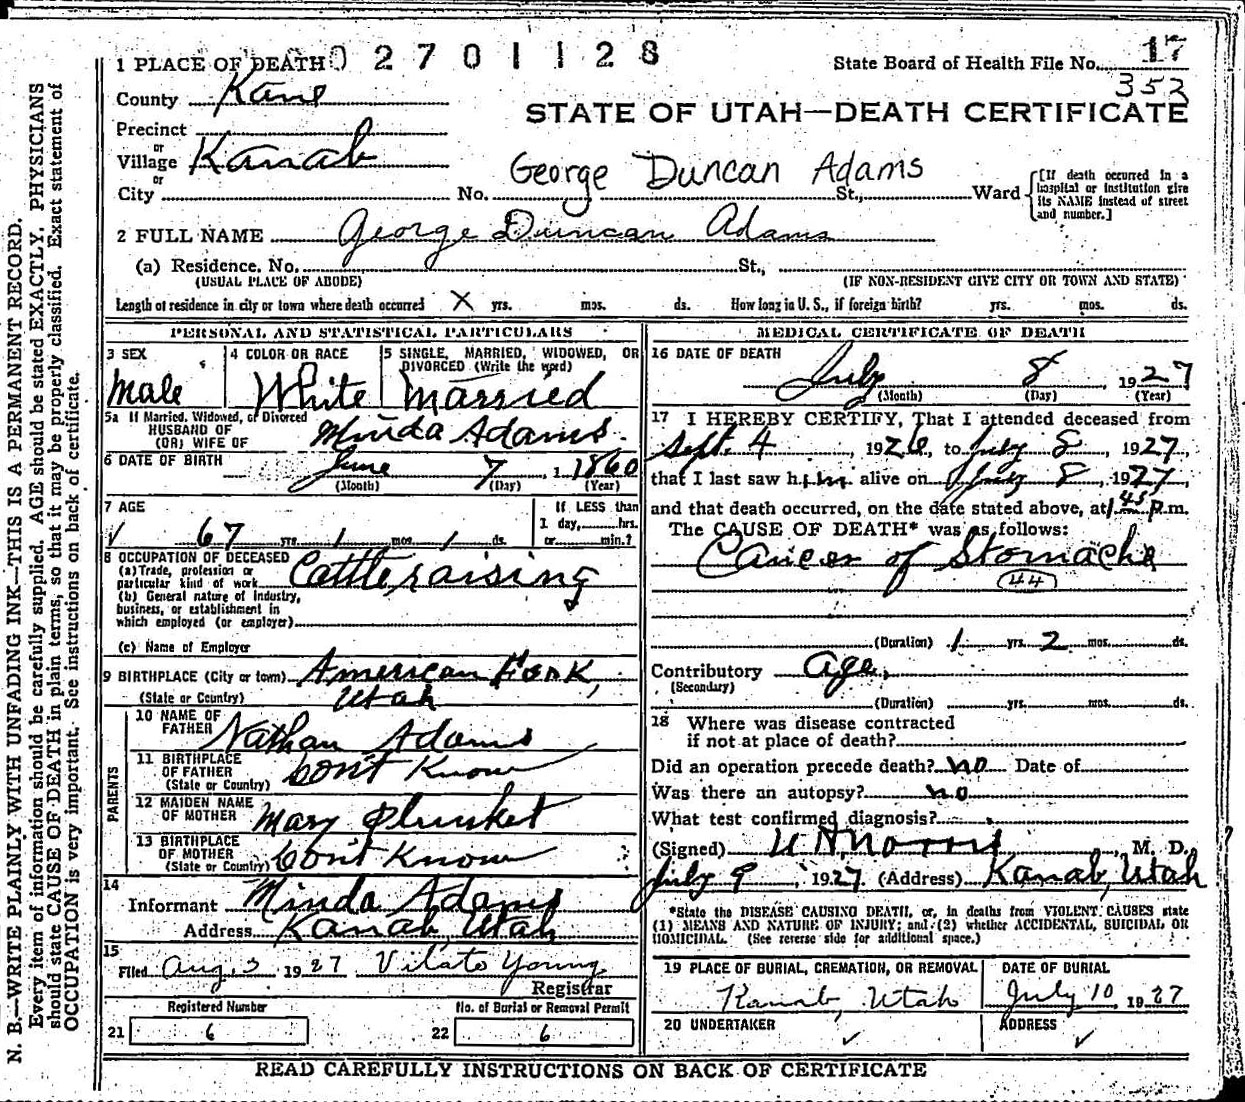 1 PLACE OF DEATH 02701128
State Board of Health File No. 17
352
County Kane
STATE OF UTAH—DEATH CERTIFICATE
Precinct
or
Village Kanab
or
City No. George Duncan Adams St., Ward
[If death occurred in a hospital or institution give its NAME instead of street and number.]
2 FULL NAME George Duncan Adams
(a) Residence. No. St.,
(USUAL PLACE OF ABODE) (IF NON-RESIDENT GIVE CITY OR TOWN AND STATE)
Length of residence in city or town where death occurred X yrs. mos. ds. How long in U. S., if foreign birth? yrs. mos. ds.
PERSONAL AND STATISTICAL PARTICULARS
3 SEX
Male
4 COLOR OR RACE
White
5 SINGLE, MARRIED, WIDOWED, OR DIVORCED (Write the word)
Married
5a If Married, Widowed, or Divorced
HUSBAND OF
(OR) WIFE OF Minda Adams.
6 DATE OF BIRTH June 7, 1860
(Month) (Day) (Year)
7 AGE
67 yrs. 1 mos. 1 ds.
If LESS than
1 day, hrs.
or min.?
8 OCCUPATION OF DECEASED
(a) Trade, profession or
particular kind of work Cattle raising
(b) General nature of Industry,
business, or establishment in
which employed (or employer)
(c) Name of Employer
9 BIRTHPLACE (City or town) American Fork,
(State or Country) Utah
PARENTS
10 NAME OF
FATHER Nathan Adams
11 BIRTHPLACE
OF FATHER Don't Know
(State or Country)
12 MAIDEN NAME
OF MOTHER Mary Plunket
13 BIRTHPLACE
OF MOTHER Don't Know
(State or Country)
14
Informant Minda Adams
Address Kanab, Utah
15
Filed Aug. 3 1927 Vilate Young
Registrar
Registered Number
21 6
No. of Burial or Removal Permit
22 6
MEDICAL CERTIFICATE OF DEATH
16 DATE OF DEATH
July 8, 1927
(Month) (Day) (Year)
17 I HEREBY CERTIFY, That I attended deceased from
Sept. 4, 1926, to July 8, 1927,
that I last saw him alive on July 8, 1927,
and that death occurred, on the date stated above, at 1 45 P.m.
The CAUSE OF DEATH* was as follows:
Cancer of Stomache
44
(Duration) 1 yrs. 2 mos. ds.
Contributory Age.
(Secondary)
(Duration) yrs. mos. ds.
18 Where was disease contracted
if not at place of death?
Did an operation precede death? no Date of
Was there an autopsy? no
What test confirmed diagnosis?
(Signed) Norris, M. D.
July 9, 1927 (Address) Kanab, Utah
*State the DISEASE CAUSING DEATH, or, in deaths from VIOLENT CAUSES state
(1) MEANS AND NATURE OF INJURY; and (2) whether ACCIDENTAL, SUICIDAL OR
HOMICIDAL. (See reverse side for additional space.)
19 PLACE OF BURIAL, CREMATION, OR REMOVAL
Kanab, Utah
DATE OF BURIAL
July 10 1927
20 UNDERTAKER
ADDRESS
READ CAREFULLY INSTRUCTIONS ON BACK OF CERTIFICATE
N. B.—WRITE PLAINLY WITH UNFADING INK—THIS IS A PERMANENT RECORD.
Every item of information should be carefully supplied. AGE should be stated EXACTLY. PHYSICIANS
should state CAUSE OF DEATH in plain terms, so that it may be properly classified. Exact statement of
OCCUPATION is very important. See instructions on back of certificate.